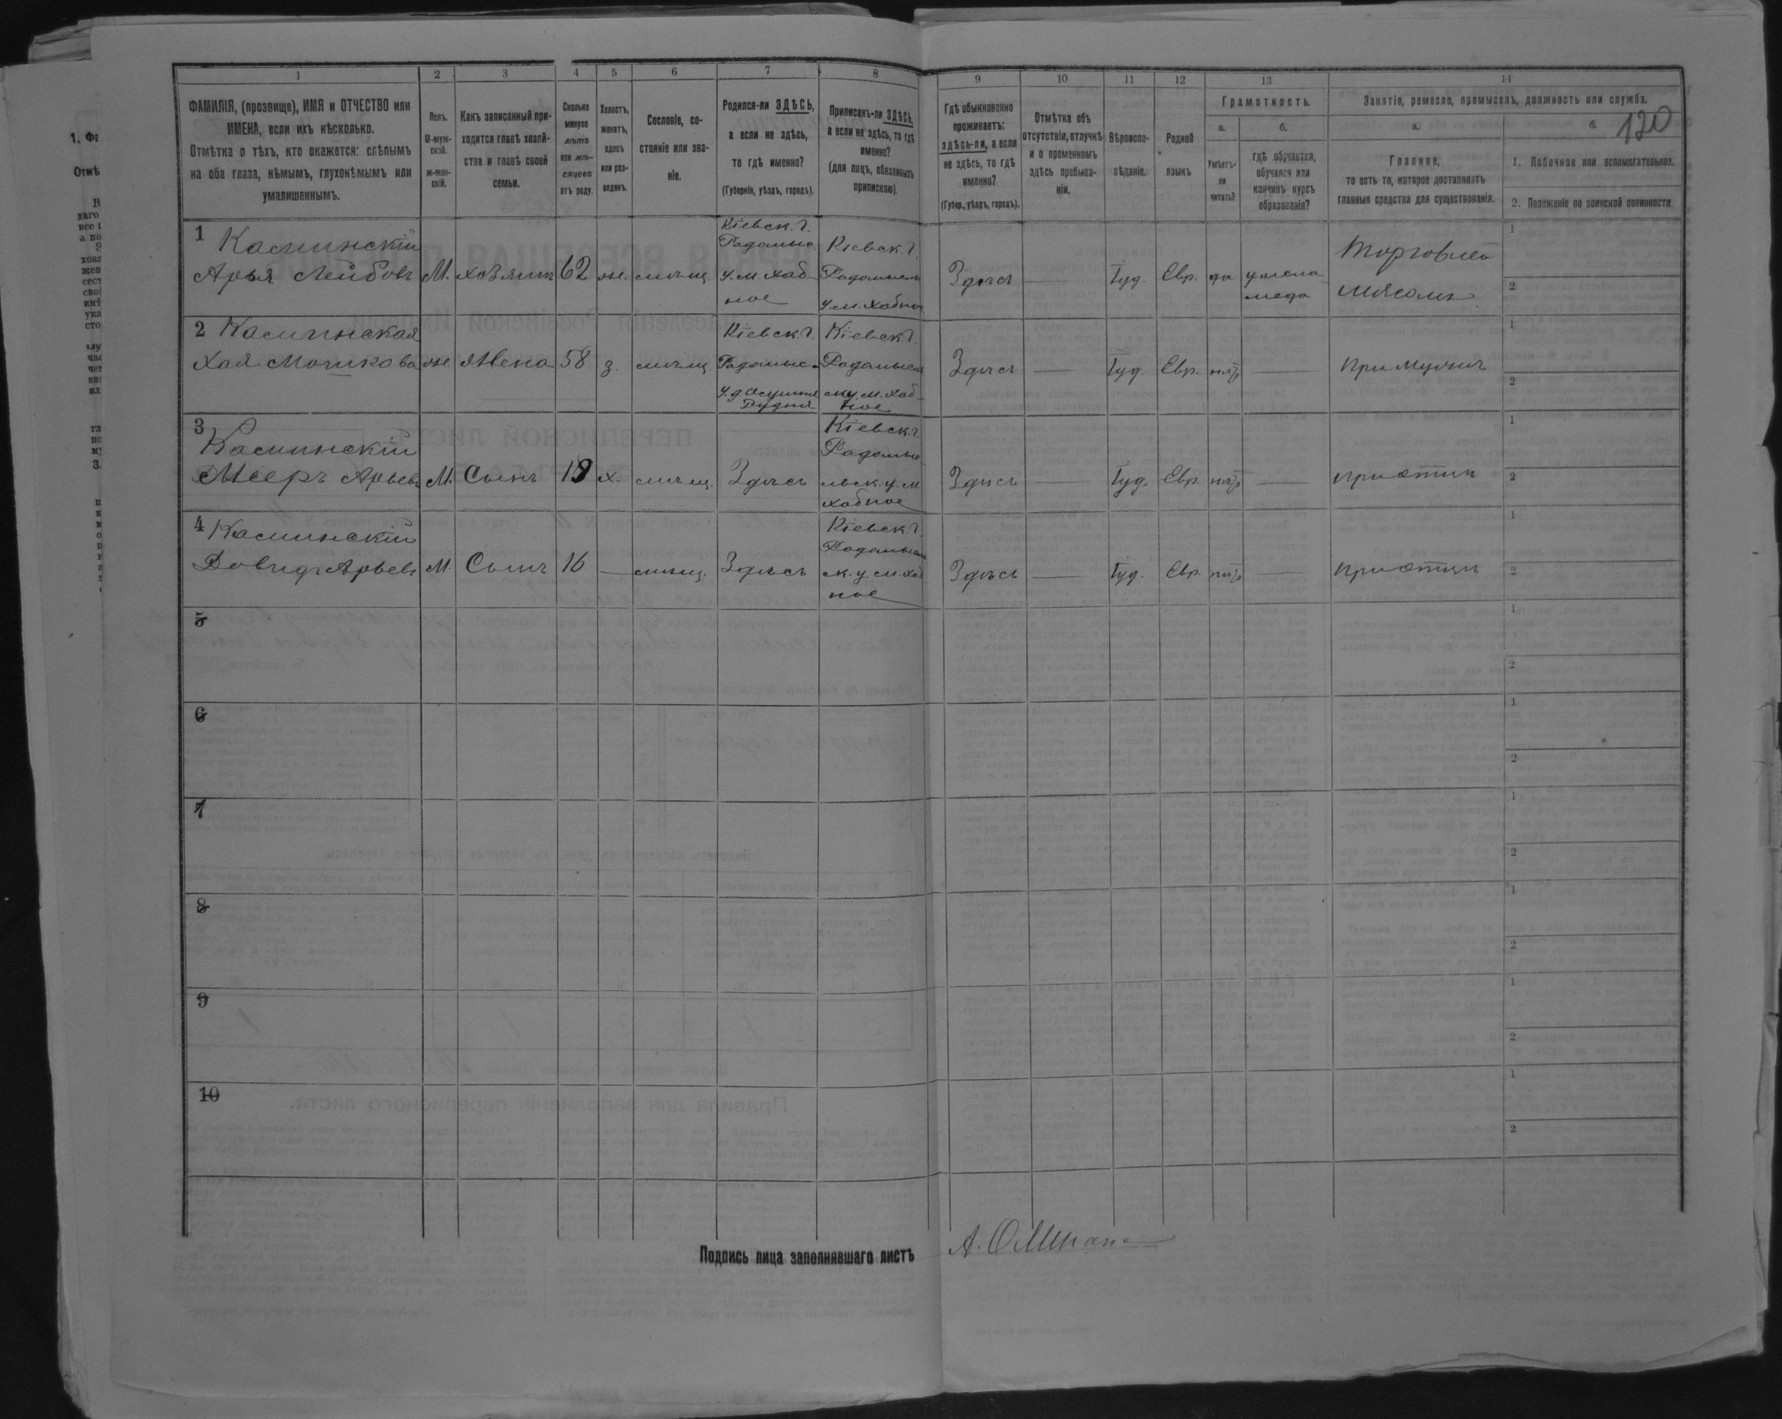 1 2 3 4 5 6 7 8 9 10 11 12 13 14
120
ФАМИЛІЯ, (прозвище), ИМЯ и ОТЧЕСТВО или
ИМЕНА, если ихъ нѣсколько.
Отмѣтка о тѣхъ, кто окажется: слѣпымъ
на оба глаза, нѣмымъ, глухонѣмымъ или
умалишеннымъ.
Полъ.
М-муж-
ской.
Ж-жен-
скій.
Какъ записанный при-
ходится главѣ хозяй-
ства и главѣ своей
семьи.
Сколько
минуло
лѣтъ
или мѣ-
сяцевъ
отъ роду.
Холостъ,
женатъ,
вдовъ
или раз-
веденъ.
Сословіе, со-
стояніе или зва-
ніе.
Родился-ли ЗДѢСЬ,
а если не здѣсь,
то гдѣ именно?
(Губернія, уѣздъ, городъ).
Приписанъ-ли ЗДѢСЬ,
а если не здѣсь, то гдѣ
именно?
(для лицъ, обязанныхъ
припискою).
Гдѣ обыкновенно
проживаетъ:
здѣсь-ли, а если
не здѣсь, то гдѣ
именно?
(Губер., уѣздъ, городъ).
Отмѣтка объ
отсутствіи, отлучкѣ
и о временномъ
здѣсь пребыва-
ніи.
Вѣроиспо-
вѣданіе.
Родной
языкъ
Грамотность.
а.
Умѣетъ-
ли
читать?
б.
гдѣ обучается,
обучался или
кончилъ курсъ
образованія?
Занятіе, ремесло, промыселъ, должность или служба.
а.
Главное,
то есть то, которое доставляетъ
главныя средства для существованія.
б.
1. Побочное или вспомогательное.
2. Положеніе по воинской повинности.
1 Каминскій
Арья Лейбовъ М. хозяинъ 62 ж. мѣщ.
Кіевск. г.
Радомыс.
у. м. Хаб-
ное
Кіевск. г.
Радомысл
у м. Хабное
Здѣсь — Іуд. Евр. да
у мела
меда
Торговлей
мясомъ
1
2
2 Каминская
Хая Мошкова ж. Жена 58 з. мѣщ.
Кіевск г.
Радомыс.
у. д
Рудня
Кіевск г.
Радомысл
ск у. м. Хаб-
ное
Здѣсь — Іуд. Евр. нѣтъ — При мужѣ
1
2
3 Каминскій
Мееръ Арьевъ М. Сынъ х. мѣщ. Здѣсь
Кіевск г.
Радомы
льск. у. м
Хабное
Здѣсь — Іуд. Евр. нѣтъ — При отцѣ
1
2
4 Каминскій
Довидъ Арьевъ М. Сынъ 16 — мѣщ. Здѣсь
Кіевск г
Радомысл
ск. у. м. Хаб
ное
Здѣсь — Іуд. Евр. нѣтъ — При отцѣ
1
2
5
1
2
6
1
2
7
1
2
8
1
2
9
1
2
10
1
2
Подпись лица заполнявшаго листъ